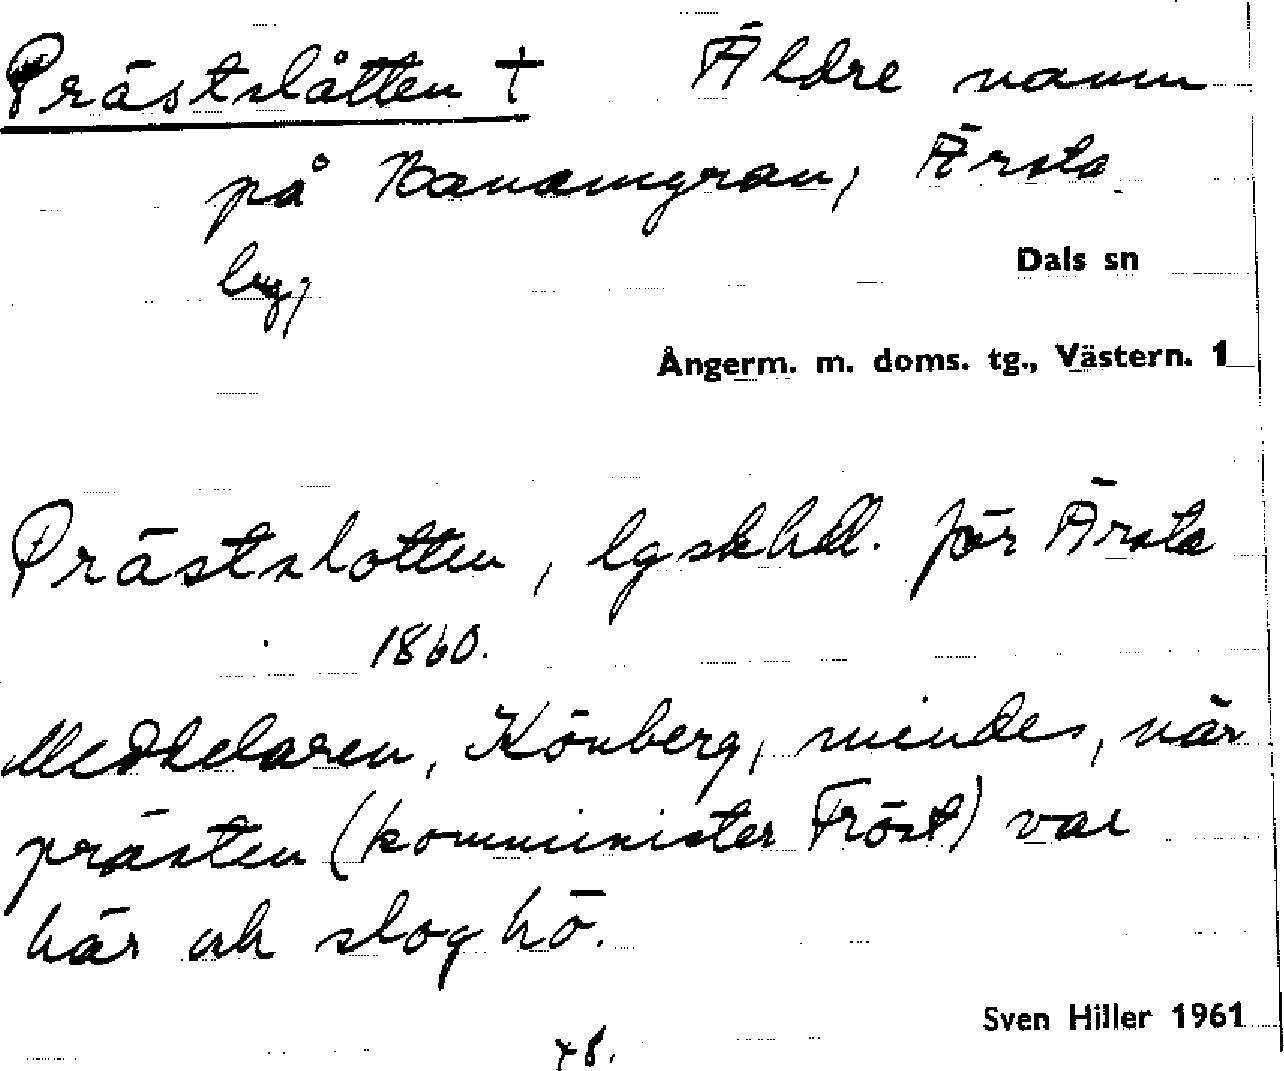 Prästslåtten † Äldre namn
på Banamgran, Ärsta
by,
Dals sn
Ångerm. m. doms. tg., Västern. 1
Prästslotten, lgskhdl. för Ärsta
1860.
Meddelaren, Könberg, mindes, när
prästen (komminister Fröst) var
här och slog hö.
Sven Hiller 1961